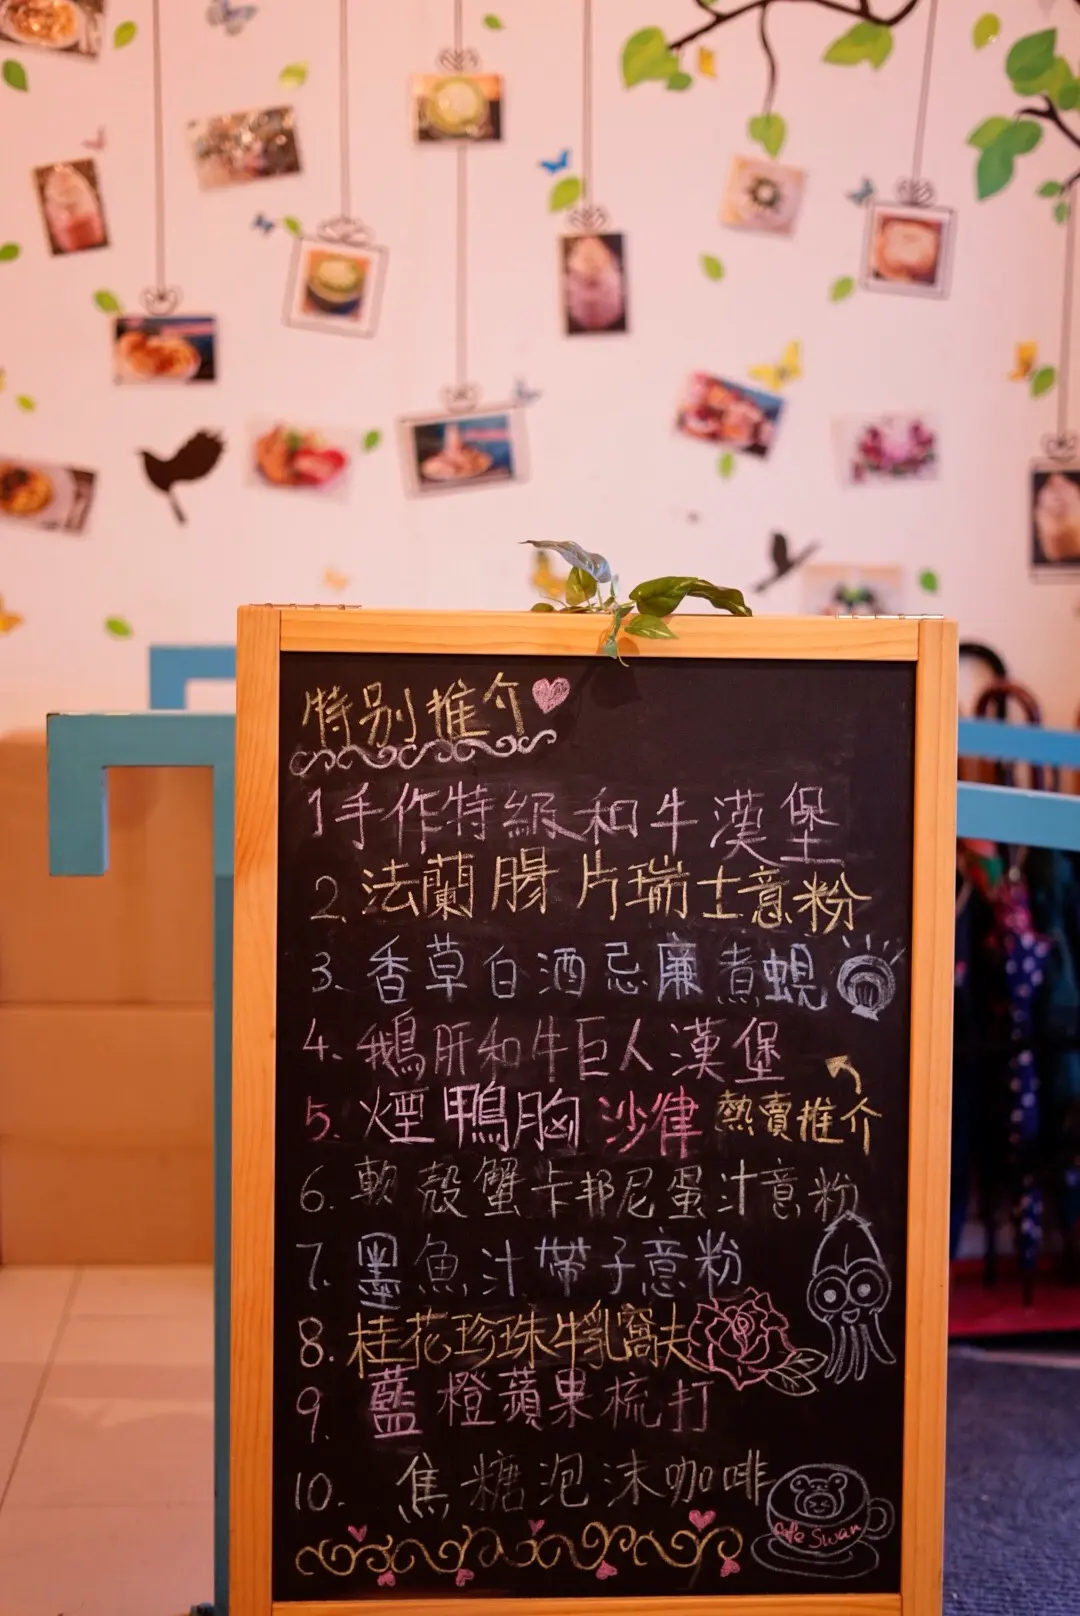 特別推介
1手作特級和牛漢堡
2. 法蘭腸片瑞士意粉
3. 香草白酒忌廉煮蜆
4. 鵝肝和牛巨人漢堡
5. 煙鴨胸沙律 熱賣推介
6. 軟殼蟹卡邦尼蛋汁意粉
7. 墨魚汁帶子意粉
8. 桂花珍珠牛乳窩夫
9. 藍橙蘋果梳打
10. 焦糖泡沫咖啡
Cafe Swan